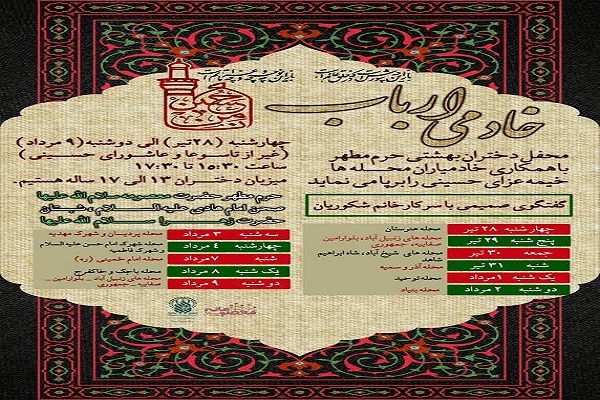 خادمی ارباب
محفل دختران بهشتی حرم مطهر
با همکاری خادمیاران محله ها
خیمه عزای حسینی را برپا می نماید
گفتگوی صمیمی با سرکار خانم شکوریان
چهارشنبه ۲۸ تیر محله هنرستان
پنج شنبه ۲۹ تیر محله های زنبیل آباد، بلوارامین صفاییه جمهوری
جمعه ۳۰ تیر محله های شیخ آباد، شاه ابراهیم
شنبه ۳۱ تیر محله آذر و سمیه
یک شنبه ۱ مرداد محله توحید
دو شنبه ۲ مرداد محله بنیاد
چهارشنبه (۲۸ تیر) الی دوشنبه (۹ مرداد)
(غیر از تاسوعا و عاشورای حسینی)
ساعت ۱۵:۳۰ تا ۱۷:۳۰
میزبان دختران ۱۳ الی ۱۷ ساله هستیم.
حرم مطهر حضرت معصومه سلام الله علیها
صحن امام هادی علیه السلام، شبستان
حضرت زهرا سلام الله علیها
سه شنبه ۳ مرداد محله پردیسان و شهرک مهدیه
چهارشنبه ۴ مرداد محله شهرک امام حسن علیه السلام و شهرک فاطمیه
شنبه ۷ مرداد محله امام خمینی (ره)
یک شنبه ۸ مرداد محله باجک و خاکفرج
دو شنبه ۹ مرداد محله های زنبیل آباد، بلوارامین، صفاییه جمهوری